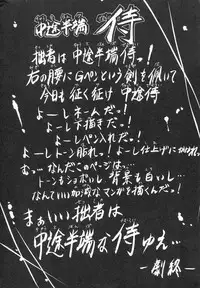 中途半端侍
拙者は中途半端侍っ!
右の腰にGペンという剣を携いて
今日も征く征け中途侍
よーしネーム だ!
よーし下描きだっ!
よーしペン入れだっ!
よーしトーン貼れ。!よーし仕上げに
むっ…なんだこのページは…
トーンもショボいし背景も白いし…
なんていい加減なマンガを描くんだっ!
まぁいい拙者は
中途半端な侍ゆえ…
―劇終―